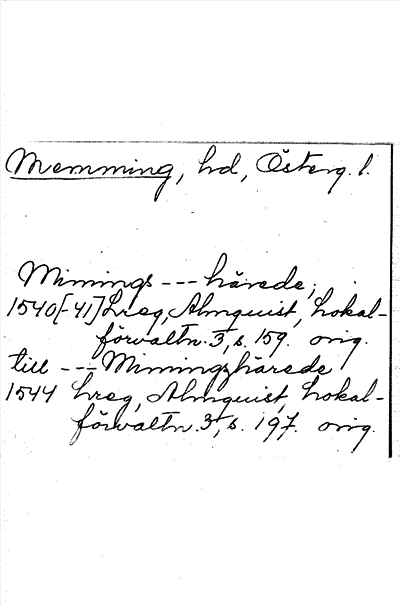 Memming, hd, Österg. l.
Mimings --- härede,
1540[-41] Lreg, Almquist, Lokal-
förvaltn. 3, s. 159. orig.
till --- Mimingshärede
1544 Lreg, Almquist, Lokal-
förvaltn. 3, s. 197. orig.